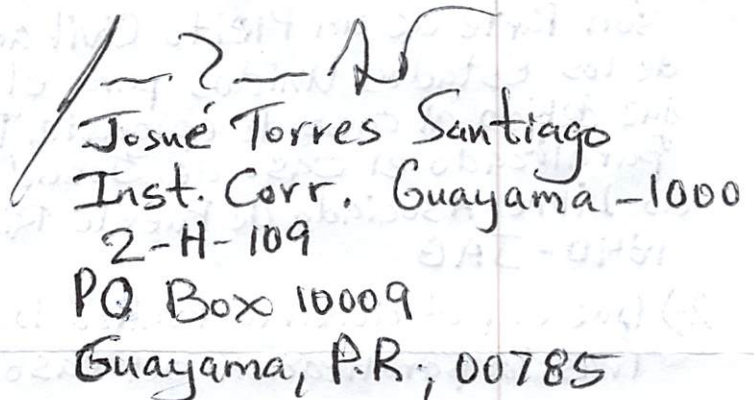 Josué Torres Santiago
Inst. Corr. Guayama-1000
2-H-109
PO Box 10009
Guayama, P.R, 00785